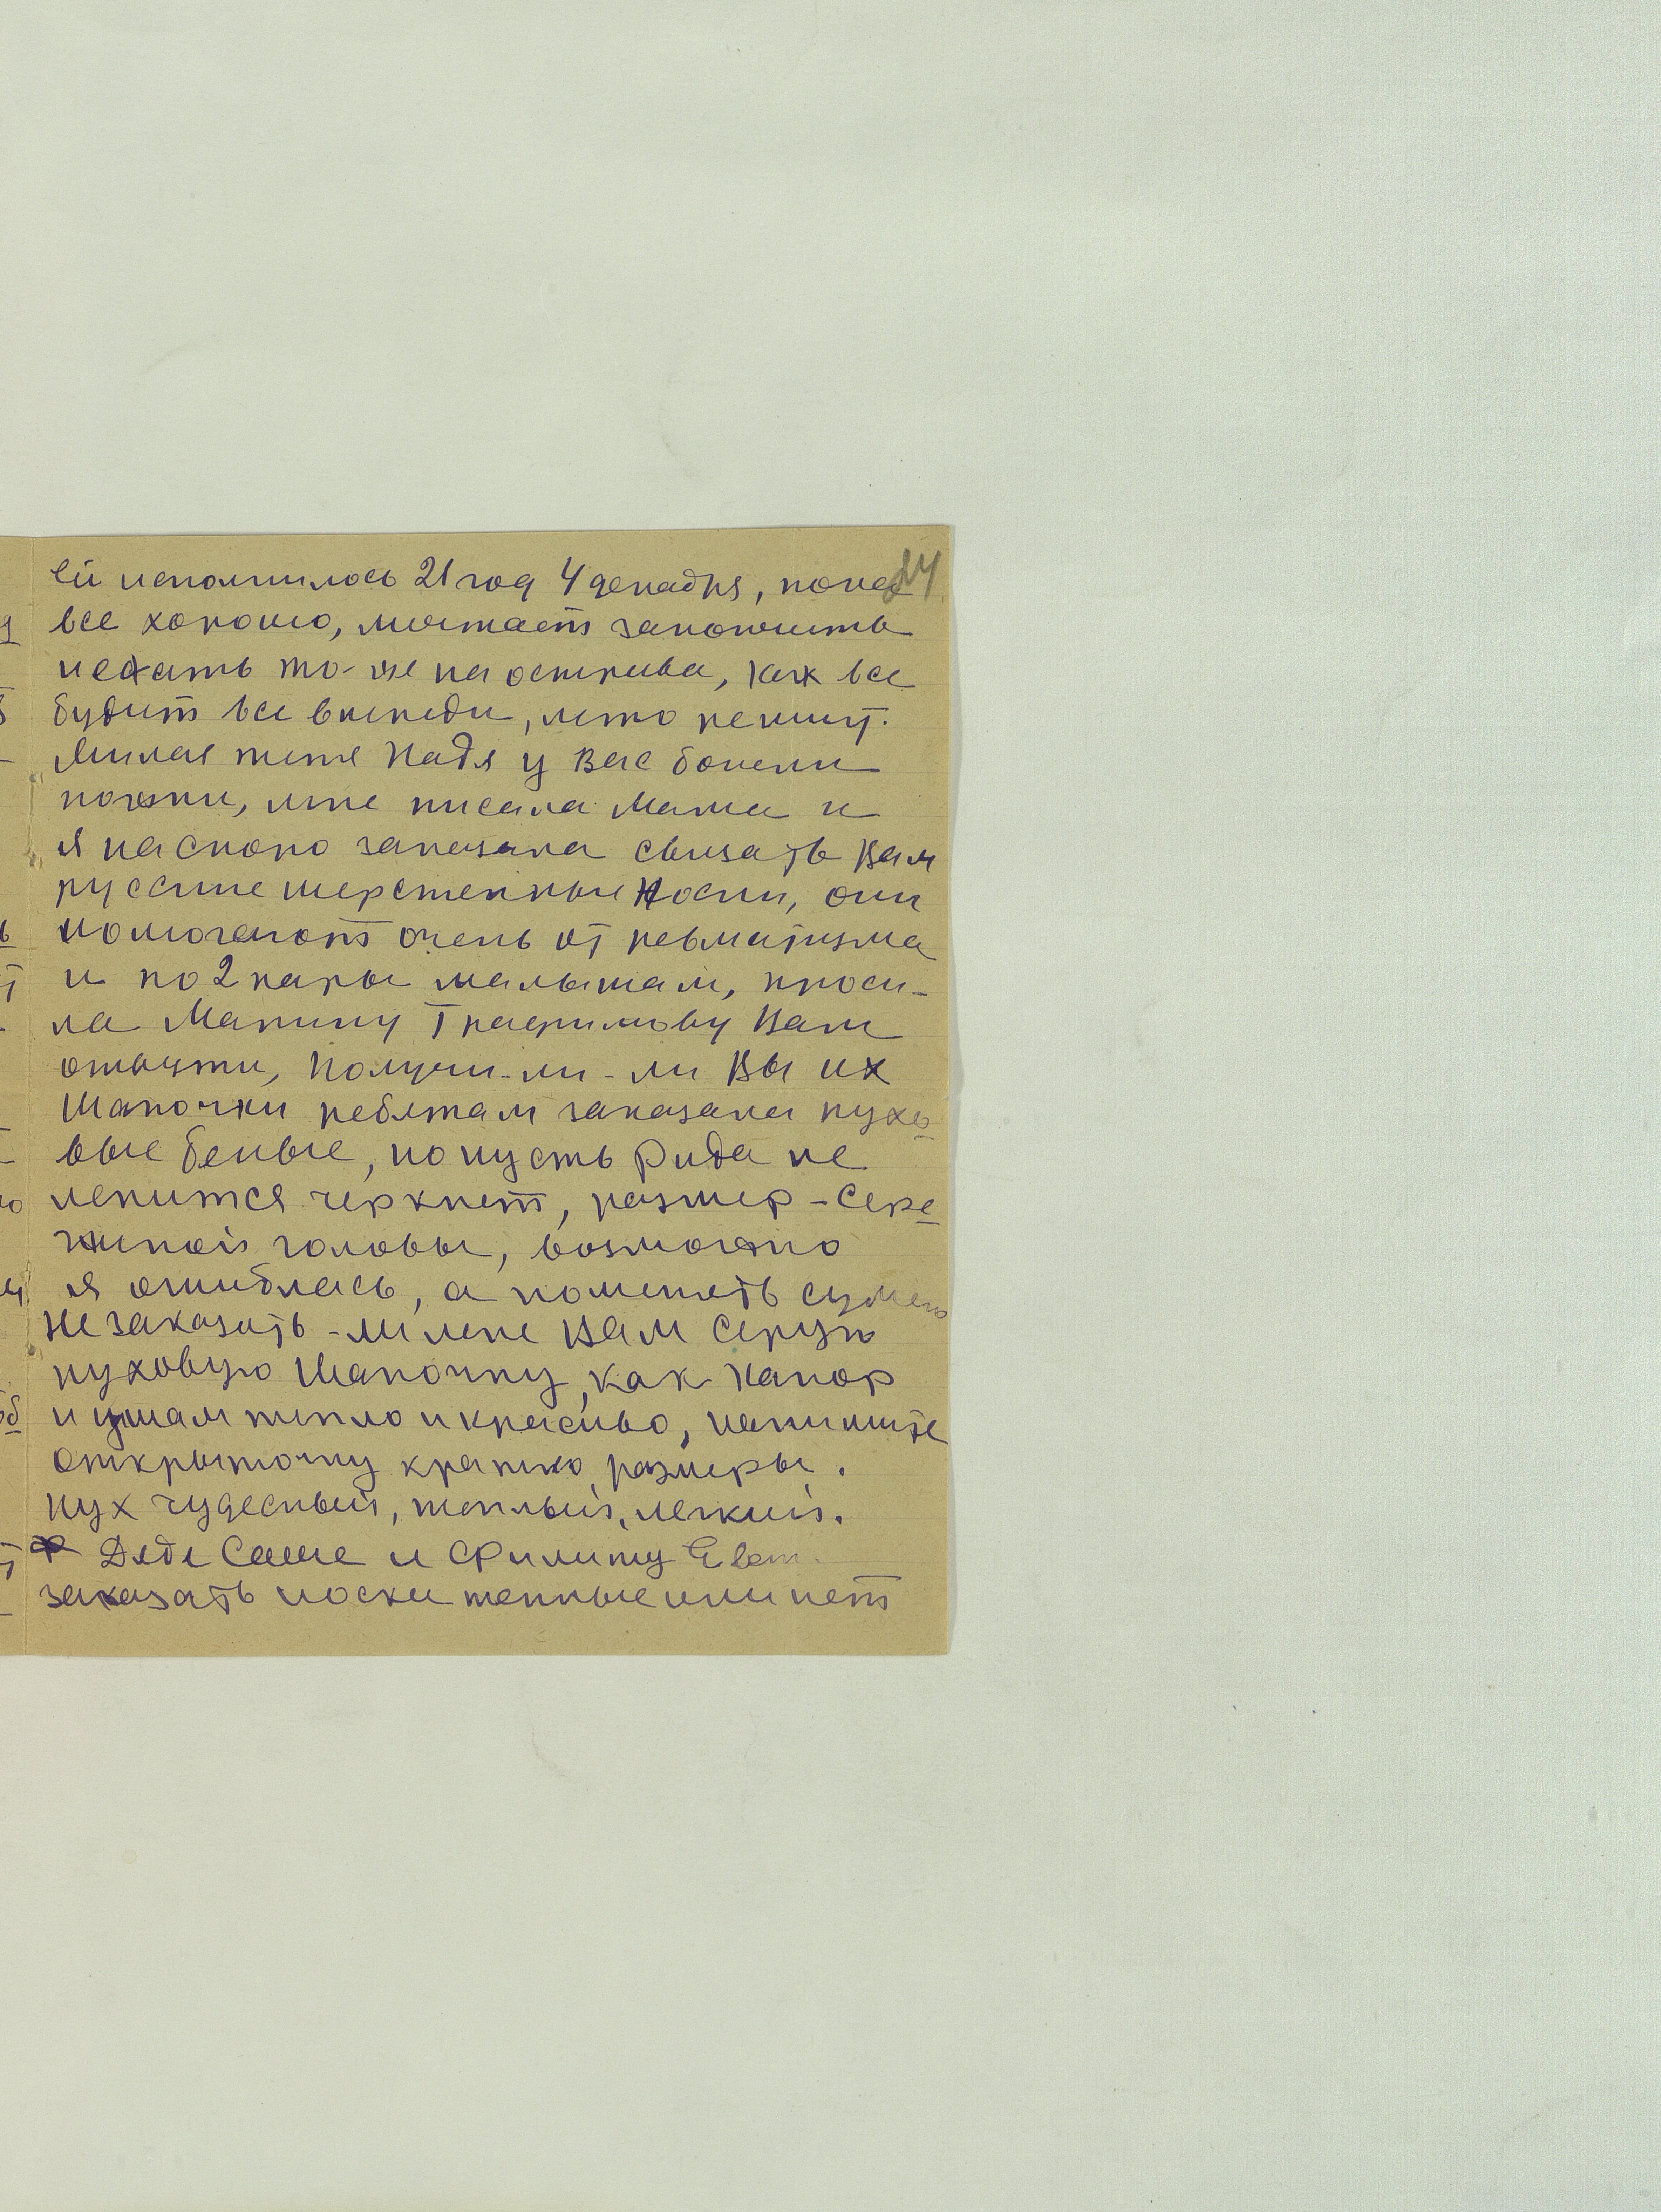 ей исполнилось 21 год 4 декабря, пока 24
все хорошо, мечтает закончить
и ехать то-же на острова, как все
будит все впереди, лето решит.
Милая тетя Надя у Вас болели
ножки, мне писала мама и
я наскоро заказала связать Вам
русские шерстенные носки, они
помогают очень от ревматизма
и по 2 пары малышам, проси-
ла Марину Трафимову Вам
отвезти, получи-ли-ли Вы их
Шапочки ребятам заказала пухо-
вые белые, но пусть Рида не
ленится черкнет, размер-Сере-
жиной головы, возможно
я ошиблась, а поменять сумею
не заказать-ли мне Вам серую
пуховую шапочку, как капор
и ушам тепло и красиво, напишите
открыточку кратко, размеры.
пух чудесный, теплый, легкий.
Дяде Саше и Филипу Евт.
заказать носки теплые или нет